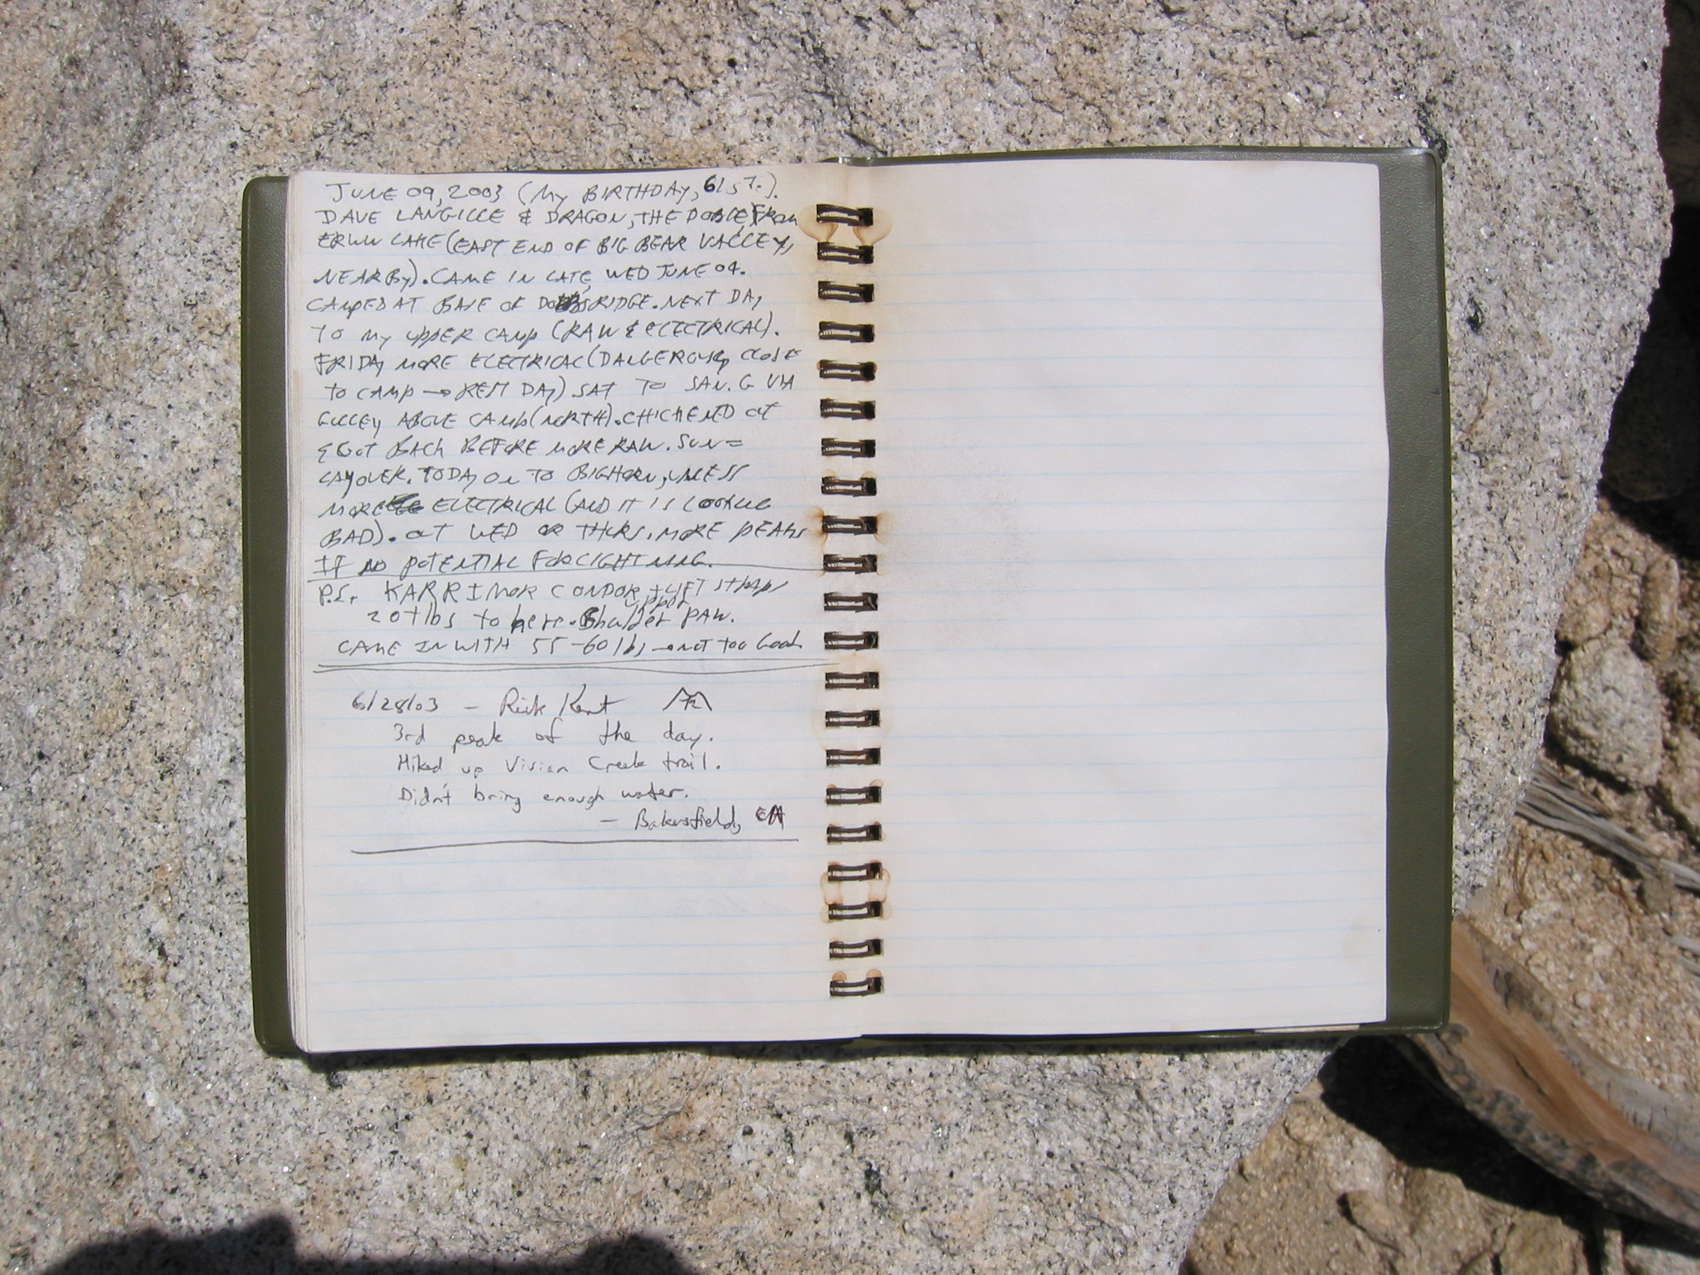 JUNE 09, 2003 (MY BIRTHDAY, 61ST.).
DAVE LANGILLE & DRAGON, THE FROM
ERWIN LAKE (EAST END OF BIG BEAR VALLEY,
NEARBY). CAME IN LATE, WED JUNE 04.
CAMPED AT BASE OF RIDGE. NEXT DAY
TO MY UPPER CAMP (RAW & ELECTRICAL).
FRIDAY MORE ELECTRICAL (DANGEROUSLY CLOSE
TO CAMP → REST DAY) SAT TO SAN. G VIA
GULLEY ABOVE CAMP (NORTH). CHICKENED OT
& GOT BACK BEFORE MORE RAW. SUN =
LAYOVER. TODAY ON TO BIGHORN, UNLESS
MORE ELECTRICAL (AND IT IS LOOKING
BAD). OT WED OR THURS. MORE PEAKS
IF NO POTENTIAL FOR LIGHTNING.
P.S. KARRIMOR CONDOR + LIFT STRAPS
20+ lbs to here. Shoulder PAW.
CAME IN WITH 55-60 lbs → NOT TOO GOOD
6/28/03 - Rick Kent
3rd peak of the day.
Hiked up Vivian Creek trail.
Didn't bring enough water.
- Bakersfield, CA